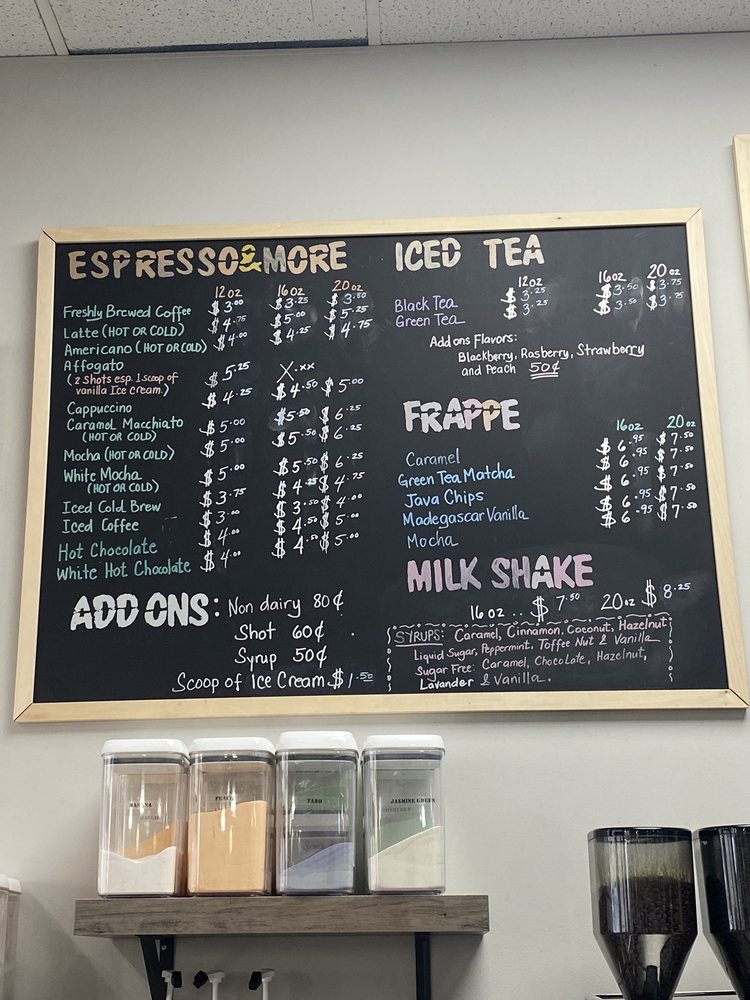 ESPRESSO & MORE
12oz 16oz 20oz
Freshly Brewed Coffee $3.00 $3.25 $3.50
Latte (HOT OR COLD) $4.75 $5.00 $5.25
Americano (HOT OR COLD) $4.00 $4.25 $4.75
Affogato $5.25 X.xx
(2 Shots esp. 1 scoop of
vanilla Ice cream.)
Cappuccino $4.25 $4.50 $5.00
Caramel Macchiato $5.00 $5.50 $6.25
(HOT OR COLD)
Mocha (HOT OR COLD) $5.00 $5.50 $6.25
White Mocha $5.00 $5.50 $6.25
(HOT OR COLD)
Iced Cold Brew $3.75 $4.25 $4.75
Iced Coffee $3.00 $3.50 $4.00
Hot Chocolate $4.00 $4.50 $5.00
White Hot Chocolate $4.00 $4.50 $5.00
ADD ONS: Non dairy 80¢
Shot 60¢
Syrup 50¢
Scoop of Ice Cream $1.50
ICED TEA
12oz 16oz 20oz
Black Tea $3.25 $3.50 $3.75
Green Tea $3.25 $3.50 $3.75
Add ons Flavors:
Blackberry, Rasberry, Strawberry
and Peach 50¢
FRAPPE
16oz 20oz
Caramel $6.95 $7.50
Green Tea Matcha $6.95 $7.50
Java Chips $6.95 $7.50
Madegascar Vanilla $6.95 $7.50
Mocha $6.95 $7.50
MILK SHAKE
16oz.. $7.50 20oz $8.25
SYRUPS: Caramel, Cinnamon, Coconut, Hazelnut
Liquid Sugar, Peppermint, Toffee Nut & Vanilla
Sugar Free: Caramel, Chocolate, Hazelnut,
Lavander & Vanilla.
BANANA
PEACH
TARO
JASMINE GREEN